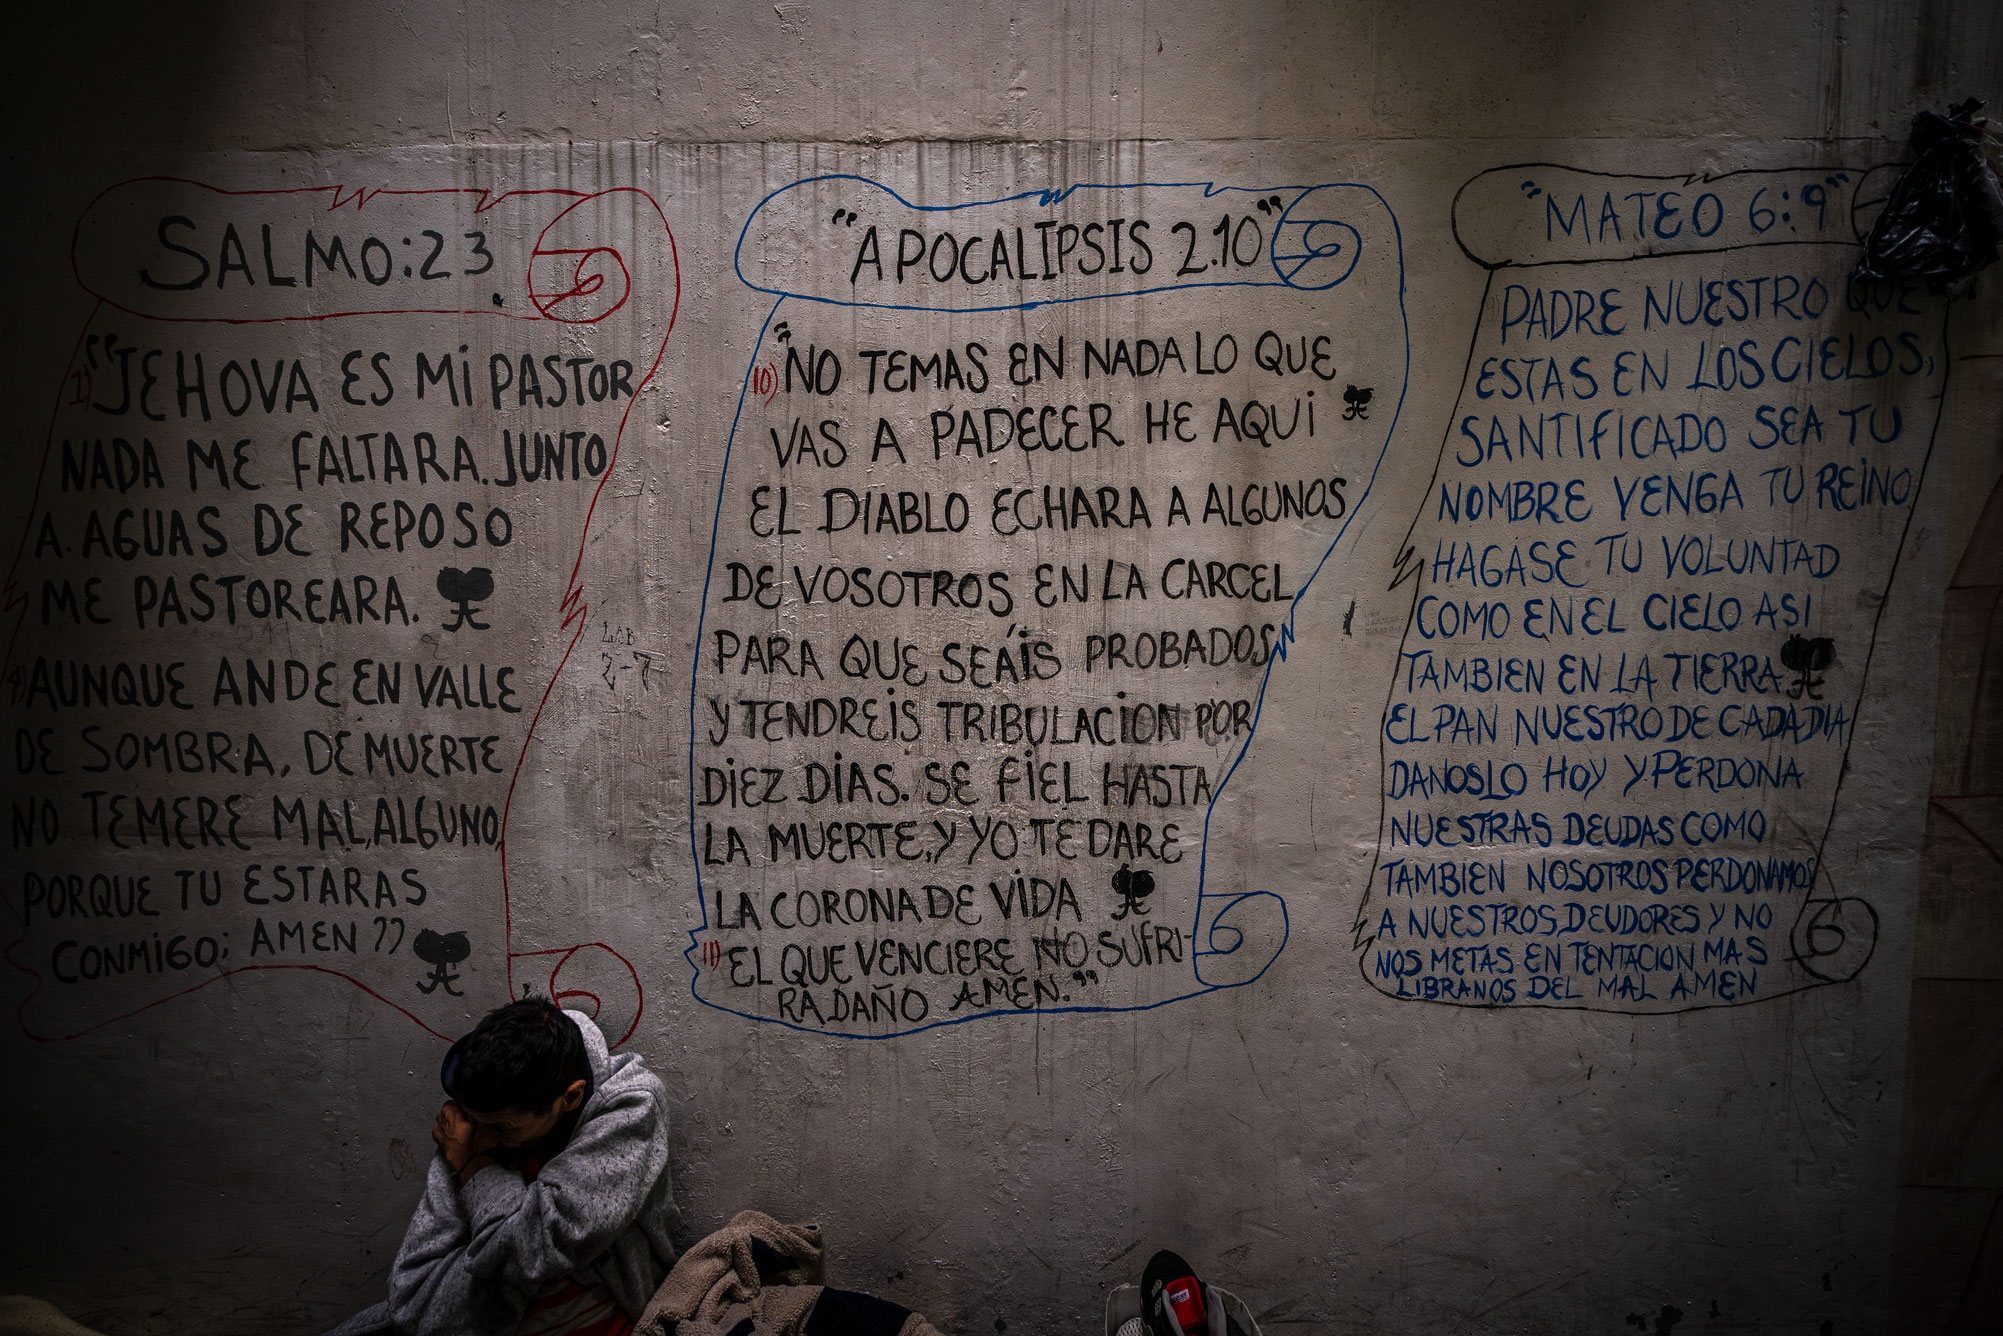 SALMO:23
1) "JEHOVA ES MI PASTOR
NADA ME FALTARA. JUNTO
A. AGUAS DE REPOSO
ME PASTOREARA.
4) AUNQUE ANDE EN VALLE
DE SOMBRA, DE MUERTE
NO TEMERE MAL, ALGUNO,
PORQUE TU ESTARAS
CONMIGO; AMEN"
LAB
2-7
"APOCALIPSIS 2.10"
10) "NO TEMAS EN NADA LO QUE
VAS A PADECER HE AQUI
EL DIABLO ECHARA A ALGUNOS
DE VOSOTROS EN LA CARCEL
PARA QUE SEÁIS PROBADOS
Y TENDREIS TRIBULACION POR
DIEZ DIAS. SE FIEL HASTA
LA MUERTE, Y YO TE DARE
LA CORONA DE VIDA
11) EL QUE VENCIERE NO SUFRI-
RA DAÑO AMEN."
"MATEO 6:9"
PADRE NUESTRO QUE
ESTAS EN LOS CIELOS,
SANTIFICADO SEA TU
NOMBRE VENGA TU REINO
HAGASE TU VOLUNTAD
COMO EN EL CIELO ASI
TAMBIEN EN LA TIERRA
EL PAN NUESTRO DE CADA DIA
DANOSLO HOY Y PERDONA
NUESTRAS DEUDAS COMO
TAMBIEN NOSOTROS PERDONAMOS
A NUESTROS DEUDORES Y NO
NOS METAS EN TENTACION MAS
LIBRANOS DEL MAL AMEN